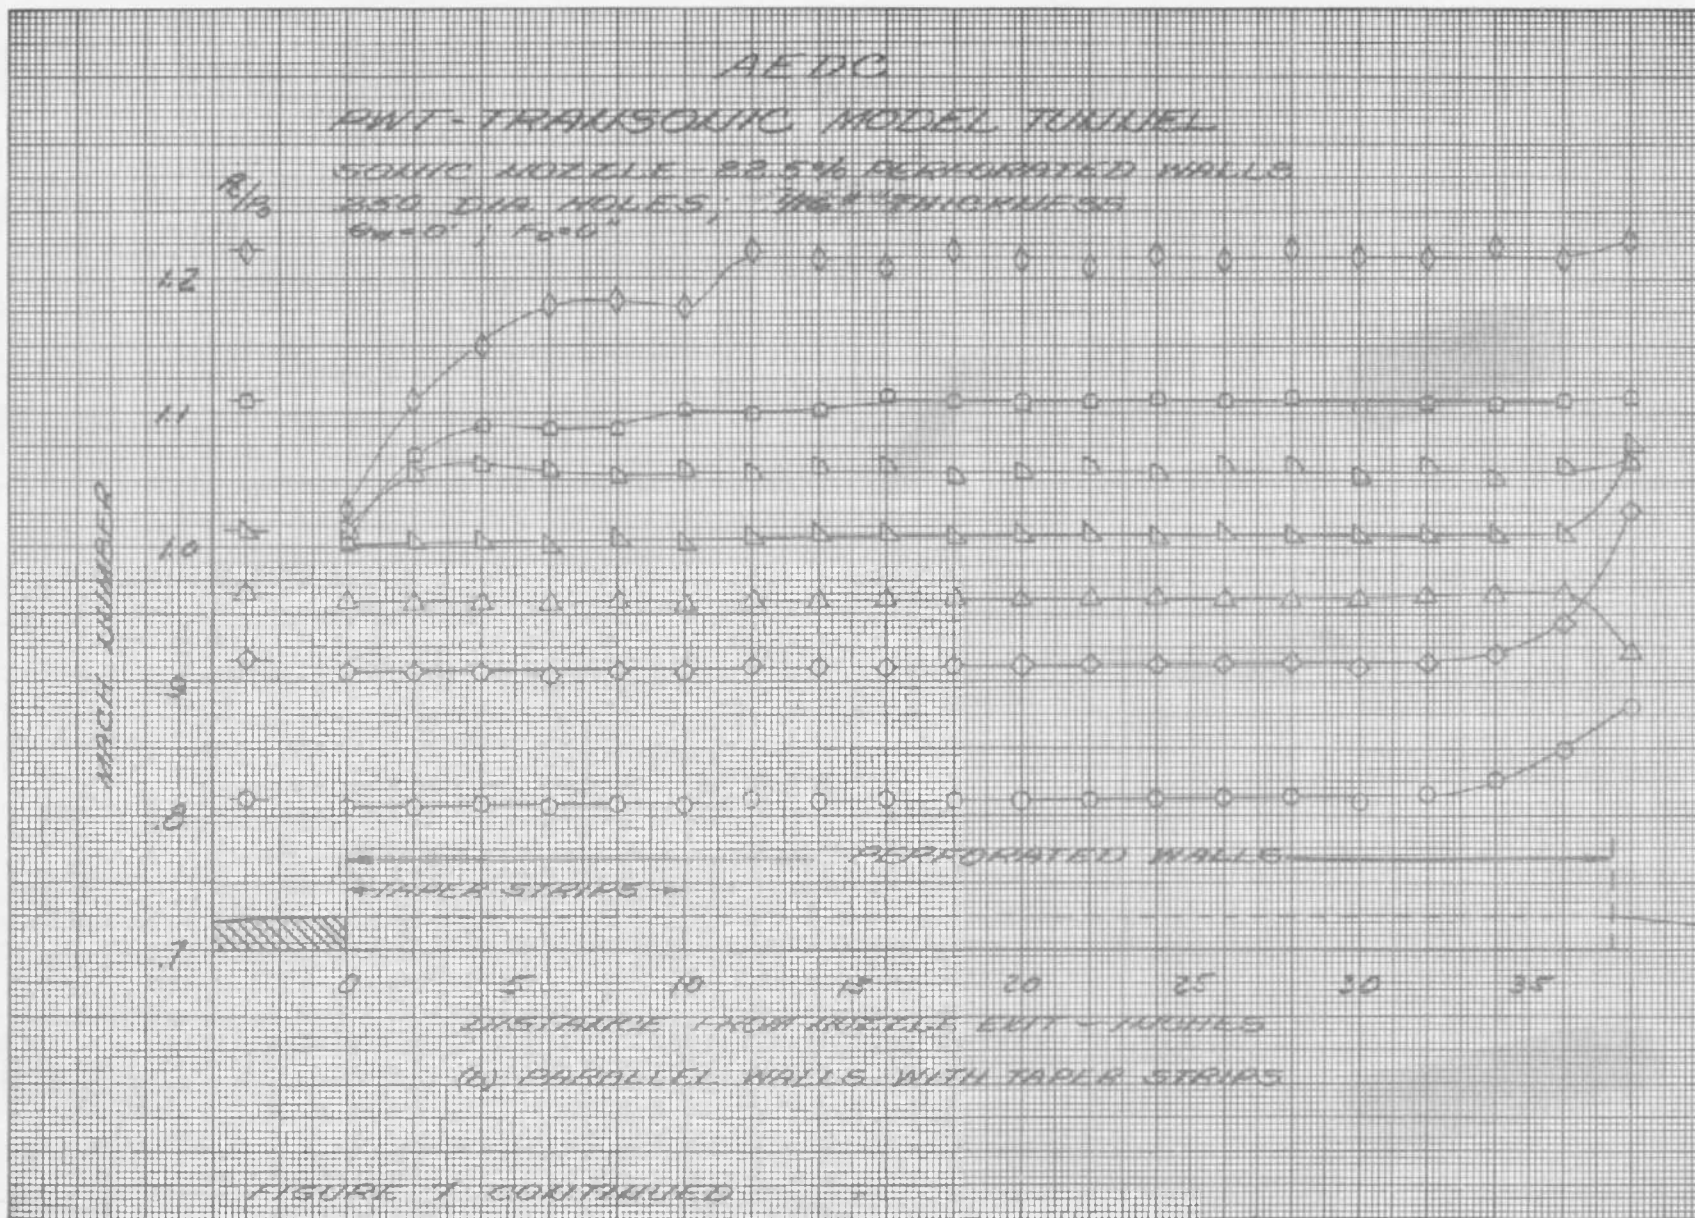 AEDC
PWT-TRANSONIC MODEL TUNNEL
SONIC NOZZLE - 22.5% PERFORATED WALLS
DIA. HOLES; THICKNESS
1.2
1.1
1.0
.9
.8
.7
MACH NUMBER
PERFORATED WALLS
TAPER STRIPS
0 5 10 15 20 25 30 35
DISTANCE FROM NOZZLE EXIT - INCHES
PARALLEL WALLS WITH TAPER STRIPS
FIGURE 7 CONTINUED